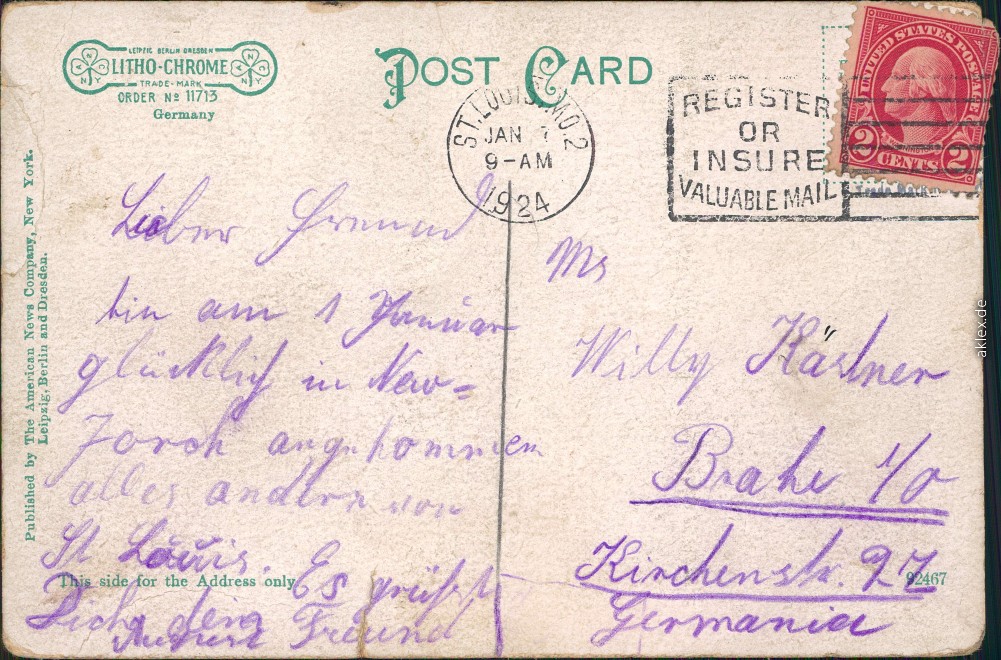 LEIPZIG BERLIN DRESDEN
LITHO-CHROME
TRADE-MARK
ORDER No 11713
Germany
POST CARD
ST. LOUIS, MO. 2
JAN 7
9-AM
1924
REGISTER
OR
INSURE
VALUABLE MAIL
UNITED STATES POSTAGE
WASHINGTON
2 CENTS 2
Published by The American News Company, New York.
Leipzig, Berlin and Dresden.
Lieber Freund
bin am 1 Januar
glücklich in New=
Jorck angekommen
alles andere von
St Louis. Es grüßt
Dich dein
Freund
This side for the Address only
Mr
Willy Kästner
Brake i/o
Kirchenstr. 27
Germania
92467
aklex.de